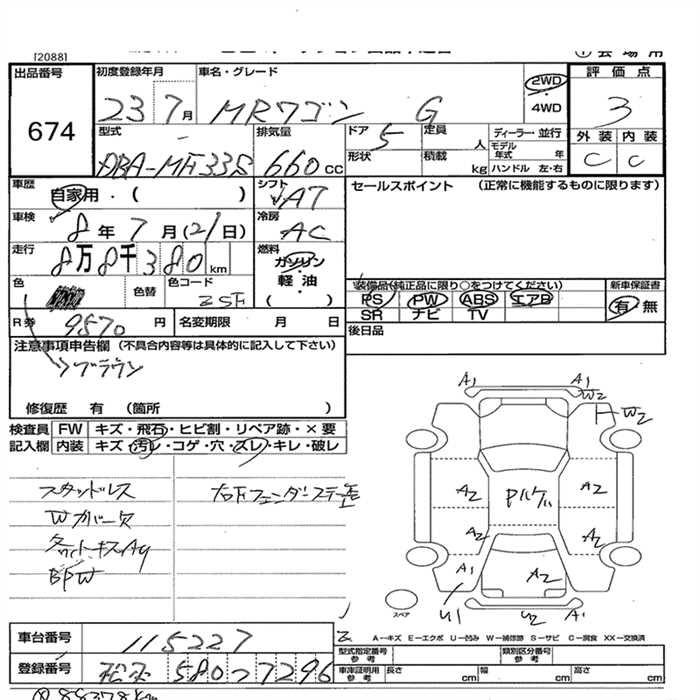 [2088]
出品番号
674
初度登録年月
車名・グレード
23 7月
MRワゴン G
2WD
・
4WD
評価点
3
外装 内装
C C
型式
DBA-MF33S
排気量
660cc
ドア
5
定員
人
形状
積載
kg
ディーラー・並行
モデル年式 年
ハンドル 左・右
車歴
自家用・( )
シフト
AT
セールスポイント (正常に機能するものに限ります)
車検
8年7月(21日)
冷房
AC
走行
8万8千380km
燃料
ガソリン
軽油
( )
色
色替
色コード
ZSF
装備品(純正品に限り○をつけてください)
新車保証書
PS PW ABS エアB
SR ナビ TV
有・無
R券
9570円
名変期限 月 日
後日品
注意事項申告欄 (不具合内容等は具体的に記入して下さい)
ブラウン
修復歴 有 (箇所 )
検査員
記入欄
FW
キズ・飛石・ヒビ割・リペア跡・×要
内装
キズ・汚レ・コゲ・穴・スレ・キレ・破レ
スタッドレス
Wカバー欠
BPW
A1 A1
W2
W2
A2 A2
A2 A2
A1
A2
U1 U2 A1
スペア
A―キズ E―エクボ U―凹み W―補修跡 S―サビ C―腐食 XX―交換済
車台番号
115227
登録番号
580 7296
型式指定番号
参考
類別区分番号
参考
車庫証明用
参考
長さ cm
幅 cm
高さ cm